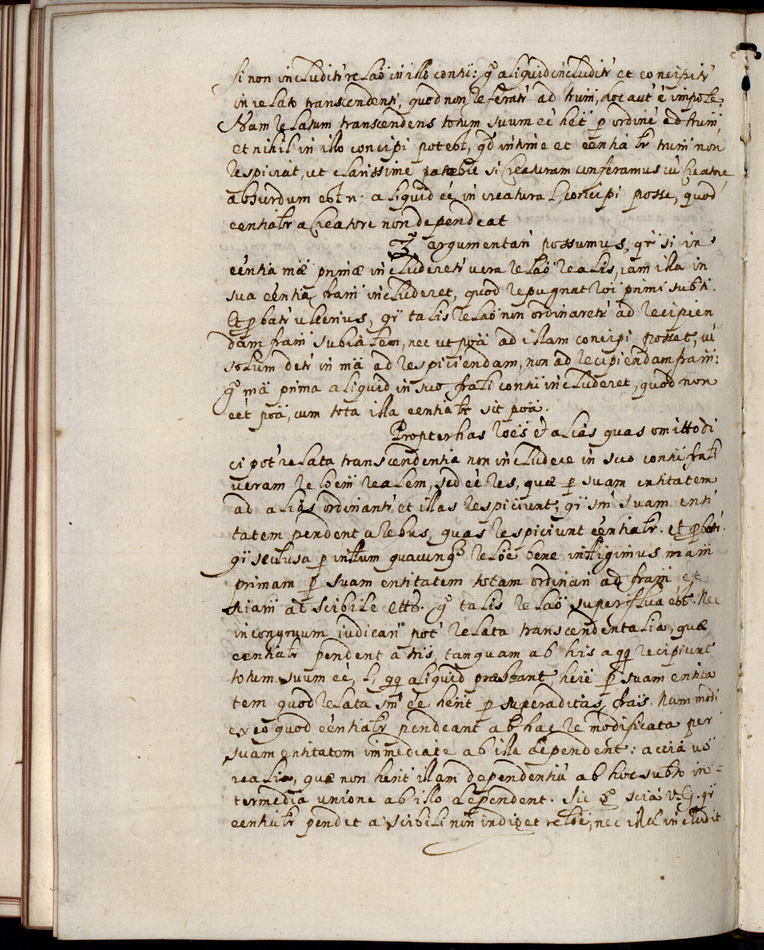 si non includitr relaõ in illo contii: gº aliquid includitr et concipitr
in relato transcendenti, quod non referatr ad trum, hoc aut é impole,
Nam relatum transcendens totum suum eé het p ordiné ad trum
et nihil in illo concipi potebt, qd intime et eentiałr trum non
respiciat, ut clarissime patebit si Creaturam conferamus cũ Creatore
absurdum ebt n. aliquid eé in creatura l concipi posse, quod
eentiałr a Creatore non dependeat
3º argumentari possumus, qr si in
eéntia mæ primæ includeretr vera relaõ realis, iam illa in
sua eéntia framˉ includeret, quod repugnat roi primi subti.
Et pbatr ulterius, qr talis relaõ non ordinaretr ad recipien
dam framˉ subialem, nec ut poã ad illam concipi posset, ut
solum detr in mã ad respiciendam, non ad recipiendam framˉ:
gº mã prima aliquid in suo frali contii includeret, quod non
eét poã, cum tota illa eentiałr sit poã.
Propter has roes et alias quas omitto di
ci pot relata transcendentia non includere in suo contii frali
veram reloem realem, sed eé res, quæ p suam entitatem
ad alias ordinantr et illas respiciunt, qr sm suam enti
tatem pendent a rebus, quas respiciunt eéntiałr. et pbatr.
qr seclusa p intllum quacunqz reloe bene intlligimus mamˉ
primam p suam entitatem totam ordinari ad framˉ et
sciamˉ at scibile etto. gº talis relaõ superflua ebt. Nec
incongruum iudicari pot relata transcendentalia, quæ
eentiałr pendent a tris tanquam ab his a qq recipiunt
totum suum eé, l qq aliquid præstant, hére p suam entita
tem quod relata sm eé hent p superaditas fras. Nam modi
ex eo quod eéntiałr pendeant ab hac re modificata per
suam entitatem immediate ab illa dependent: accia vº
realia, quæ non hent illam dependentiã ab hoc subto in=
termedia unione ab illo dependent. Sic gº scia v.g. qr
eentiałr pendet a scibili non indiget reloe, nec illã includit